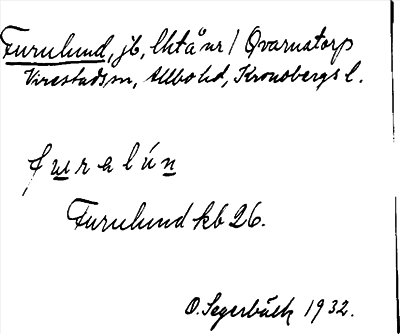 Furulund, jb, lht å nr 1 Qvarnatorp
Virestads sn, Allbo hd, Kronobergs l.
furalún
Furulund kb 26.
O. Segerbäck 1932.